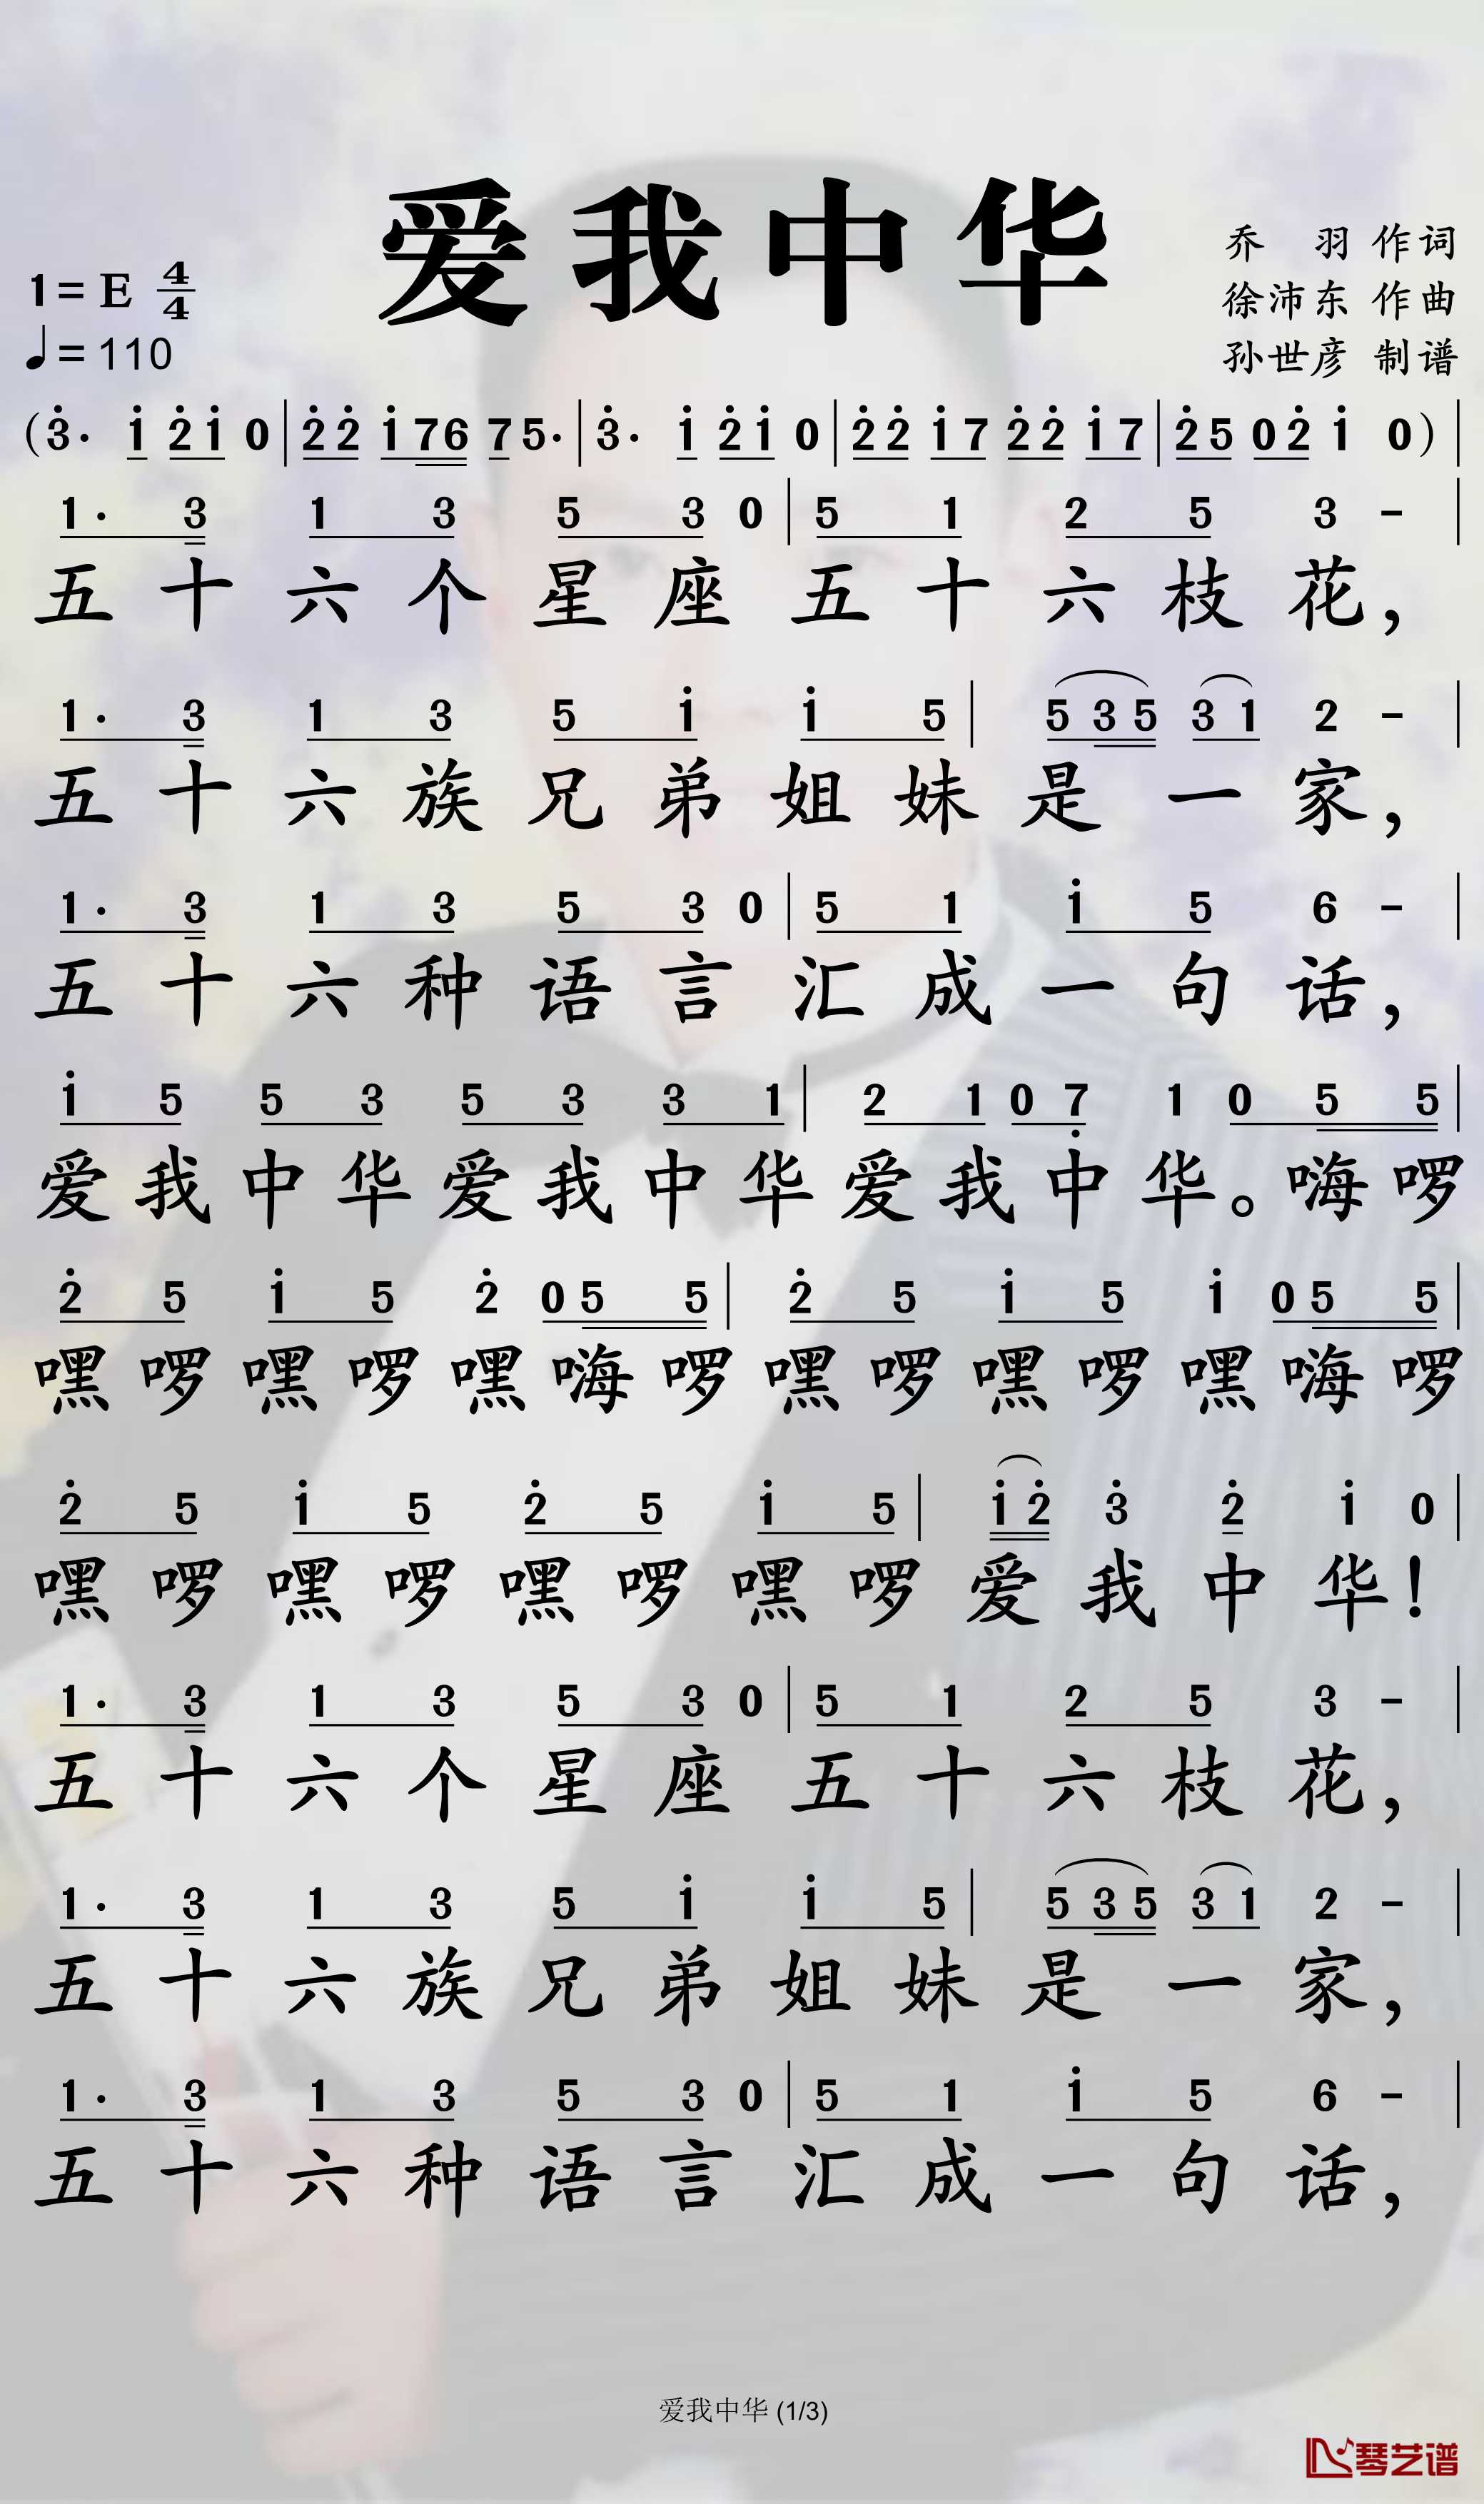 爱我中华
乔 羽 作词
1=E 4/4
徐沛东 作曲
♩=110
孙世彦 制谱
(3̇· 1̇ 2̇ 1̇ 0 | 2̇ 2̇ 1̇ 7 6 7 5· | 3̇· 1̇ 2̇ 1̇ 0 | 2̇ 2̇ 1̇ 7 2̇ 2̇ 1̇ 7 | 2̇ 5 0 2̇ 1̇ 0) |
1· 3 1 3 5 3 0 | 5 1 2 5 3 - |
五十六个星座五十六枝花，
1· 3 1 3 5 1̇ 1̇ 5 | 5 3 5 3 1 2 - |
五十六族兄弟姐妹是一家，
1· 3 1 3 5 3 0 | 5 1 1̇ 5 6 - |
五十六种语言汇成一句话，
1̇ 5 5 3 5 3 3 1 | 2 1 0 7̣ 1 0 5 5 |
爱我中华爱我中华爱我中华。嗨啰
2̇ 5 1̇ 5 2̇ 0 5 5 | 2̇ 5 1̇ 5 1̇ 0 5 5 |
嘿啰嘿啰嘿嗨啰嘿啰嘿啰嘿嗨啰
2̇ 5 1̇ 5 2̇ 5 1̇ 5 | 1̇ 2̇ 3̇ 2̇ 1̇ 0 |
嘿啰嘿啰嘿啰嘿啰爱我中华！
1· 3 1 3 5 3 0 | 5 1 2 5 3 - |
五十六个星座五十六枝花，
1· 3 1 3 5 1̇ 1̇ 5 | 5 3 5 3 1 2 - |
五十六族兄弟姐妹是一家，
1· 3 1 3 5 3 0 | 5 1 1̇ 5 6 - |
五十六种语言汇成一句话，
爱我中华 (1/3)
琴艺谱